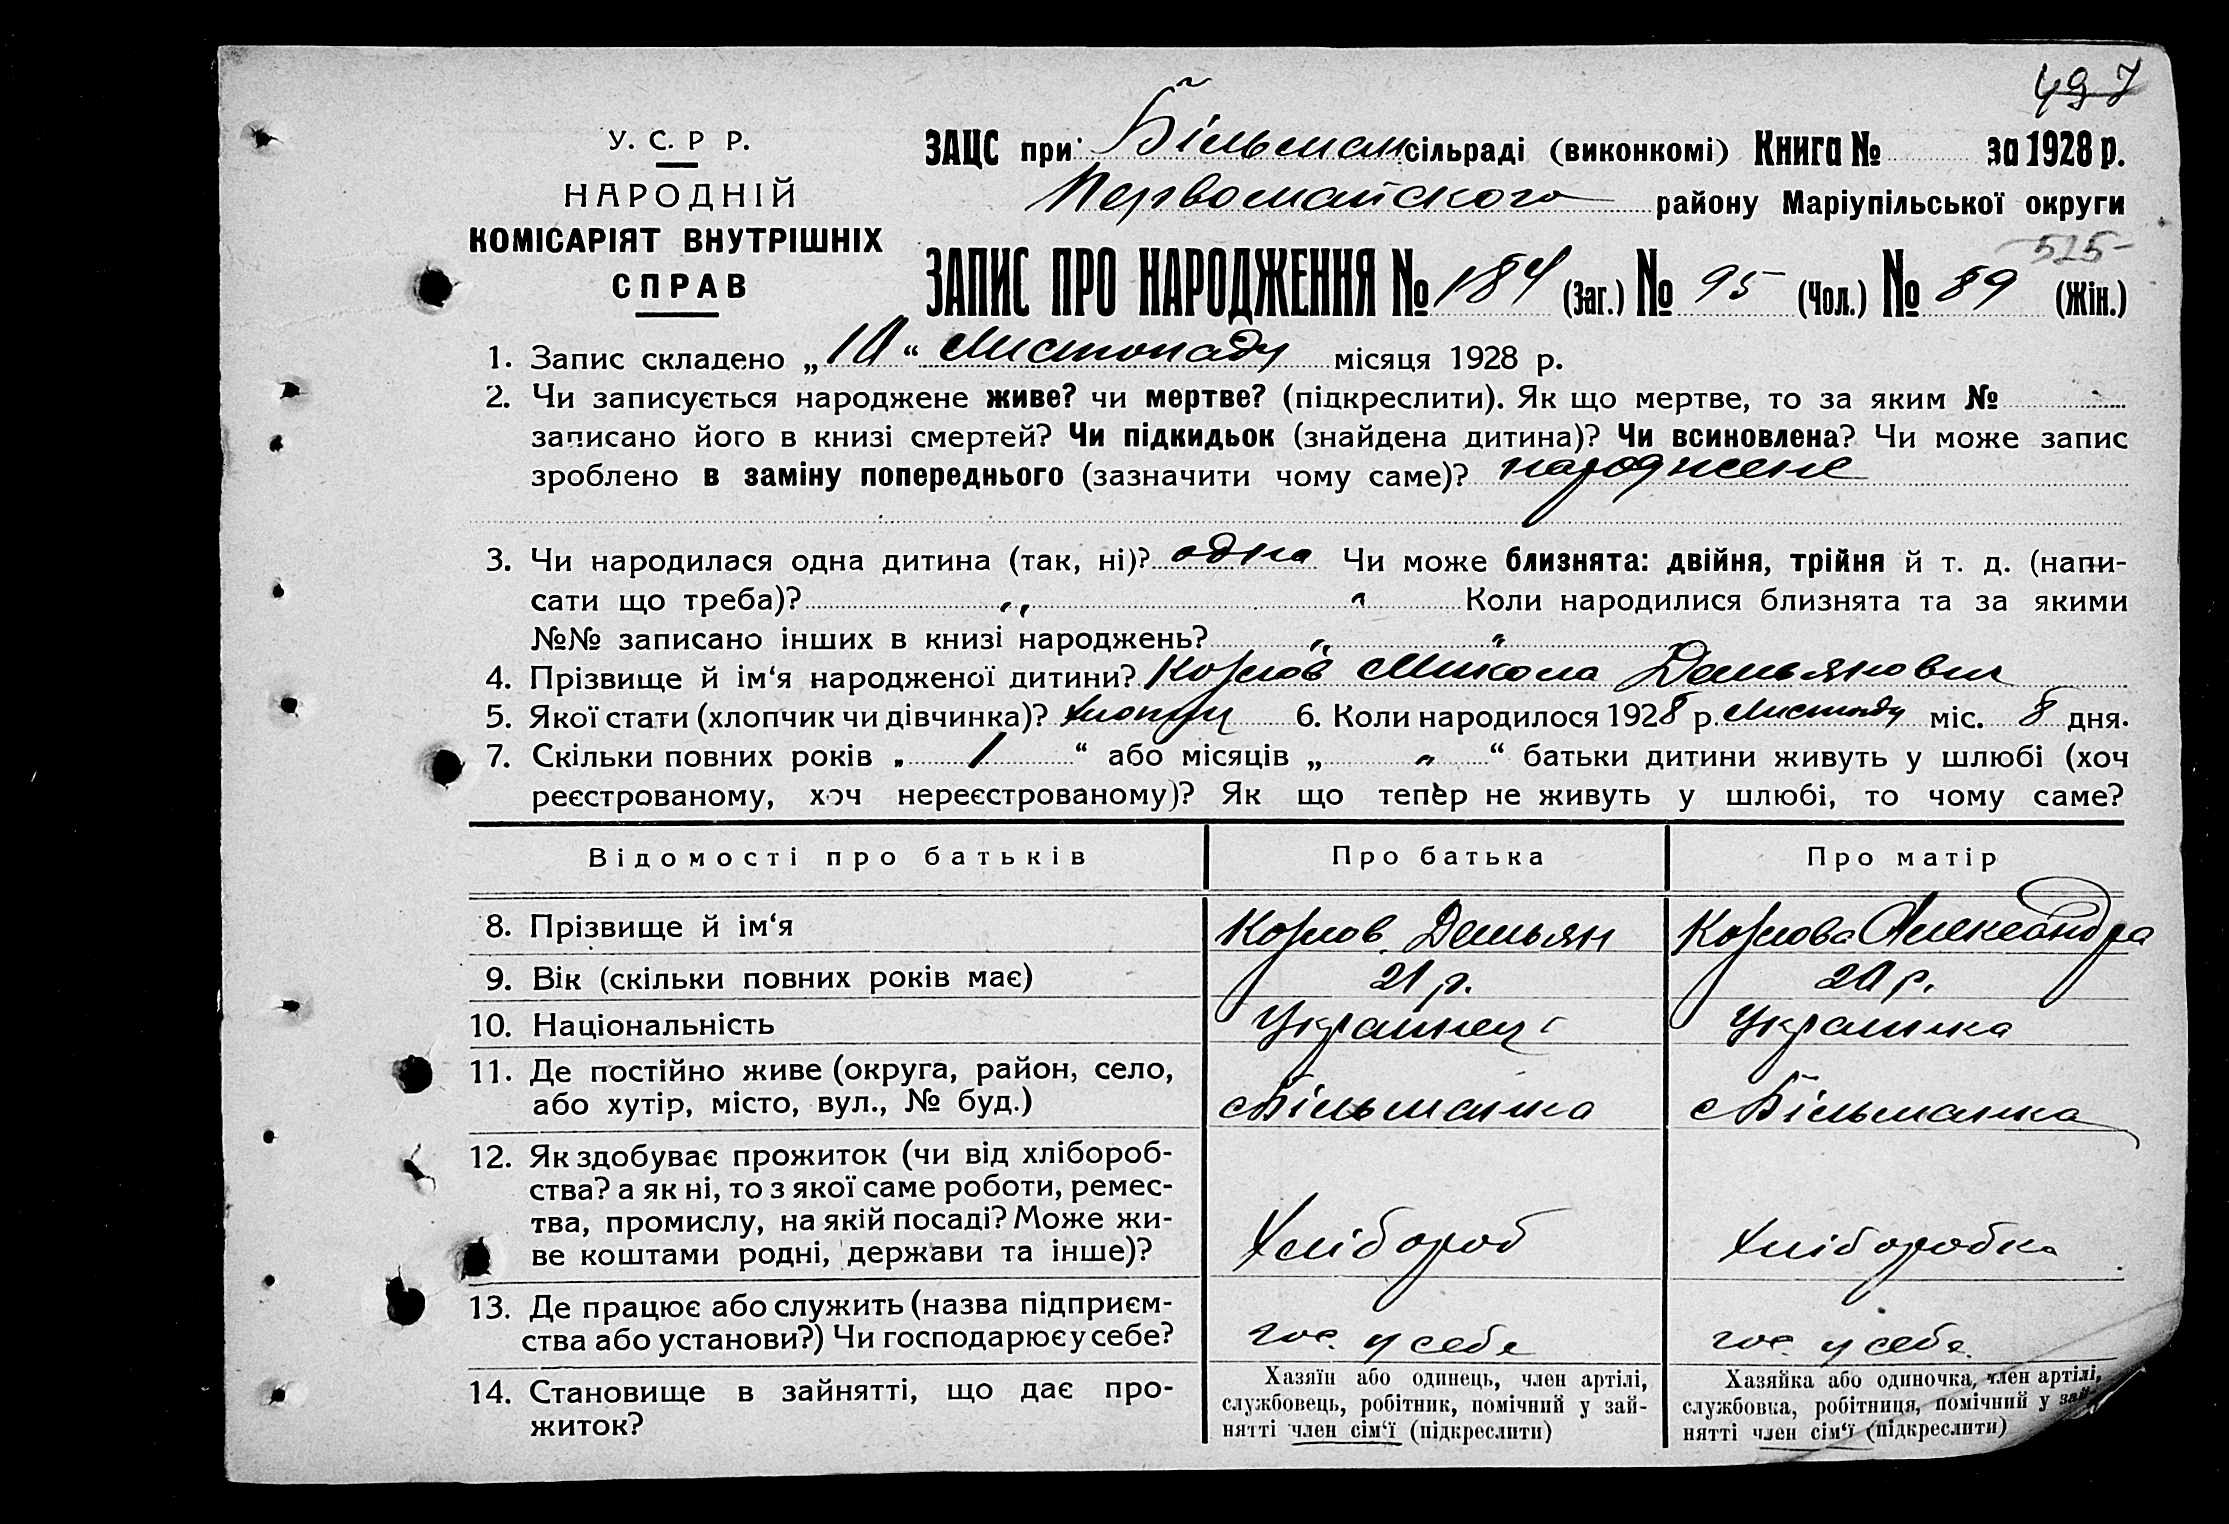 497
У. С. Р Р.
НАРОДНІЙ
КОМІСАРІЯТ ВНУТРІШНІХ
СПРАВ
ЗАЦС при Більман сільраді (виконкомі) Книга № за 1928 р.
Первомайского району Маріупільської округи
525
ЗАПИС ПРО НАРОДЖЕННЯ № 184 (Заг.) № 95 (Чол.) № 89 (Жін.)
1. Запис складено „10“ Листопаду місяця 1928 р.
2. Чи записується народжене живе? чи мертве? (підкреслити). Як що мертве, то за яким №
записано його в книзі смертей? Чи підкидьок (знайдена дитина)? Чи всиновлена? Чи може запис
зроблено в заміну попереднього (зазначити чому саме)? народжене
3. Чи народилася одна дитина (так, ні)? одна Чи може близнята: двійня, трійня й т. д. (напи-
сати що треба)? „ „ Коли народилися близнята та за якими
№№ записано інших в книзі народжень? „ „
4. Прізвище й ім‘я народженої дитини? Микола Демьянович
5. Якої стати (хлопчик чи дівчинка)? 6. Коли народилося 1928 р. міс. 8 дня.
7. Скільки повних років „ 1 “ або місяців „ „ “ батьки дитини живуть у шлюбі (хоч
реєстрованому, хоч нереєстрованому)? Як що тепер не живуть у шлюбі, то чому саме?
Відомості про батьків Про батька Про матір
8. Прізвище й ім‘я Демьян Александра
9. Вік (скільки повних років має) 21 р. 20 р.
10. Національність Українец Українка
11. Де постійно живе (округа, район, село,
або хутір, місто, вул., № буд.) с Більманка с Більманка
12. Як здобуває прожиток (чи від хлібороб-
ства? а як ні, то з якої саме роботи, ремес-
тва, промислу, на якій посаді? Може жи-
ве коштами родні, держави та інше)? Хлібороб Хліборобка
13. Де працює або служить (назва підприєм-
ства або установи?) Чи господарює у себе? гос. у себе гос. у себе.
14. Становище в зайнятті, що дає про-
житок?
Хазяїн або одинець, член артілі,
службовець, робітник, помічний у зай-
нятті член сім‘ї (підкреслити)
Хазяйка або одиночка, член артілі,
службовка, робітниця, помічний у зай-
нятті член сім‘ї (підкреслити)